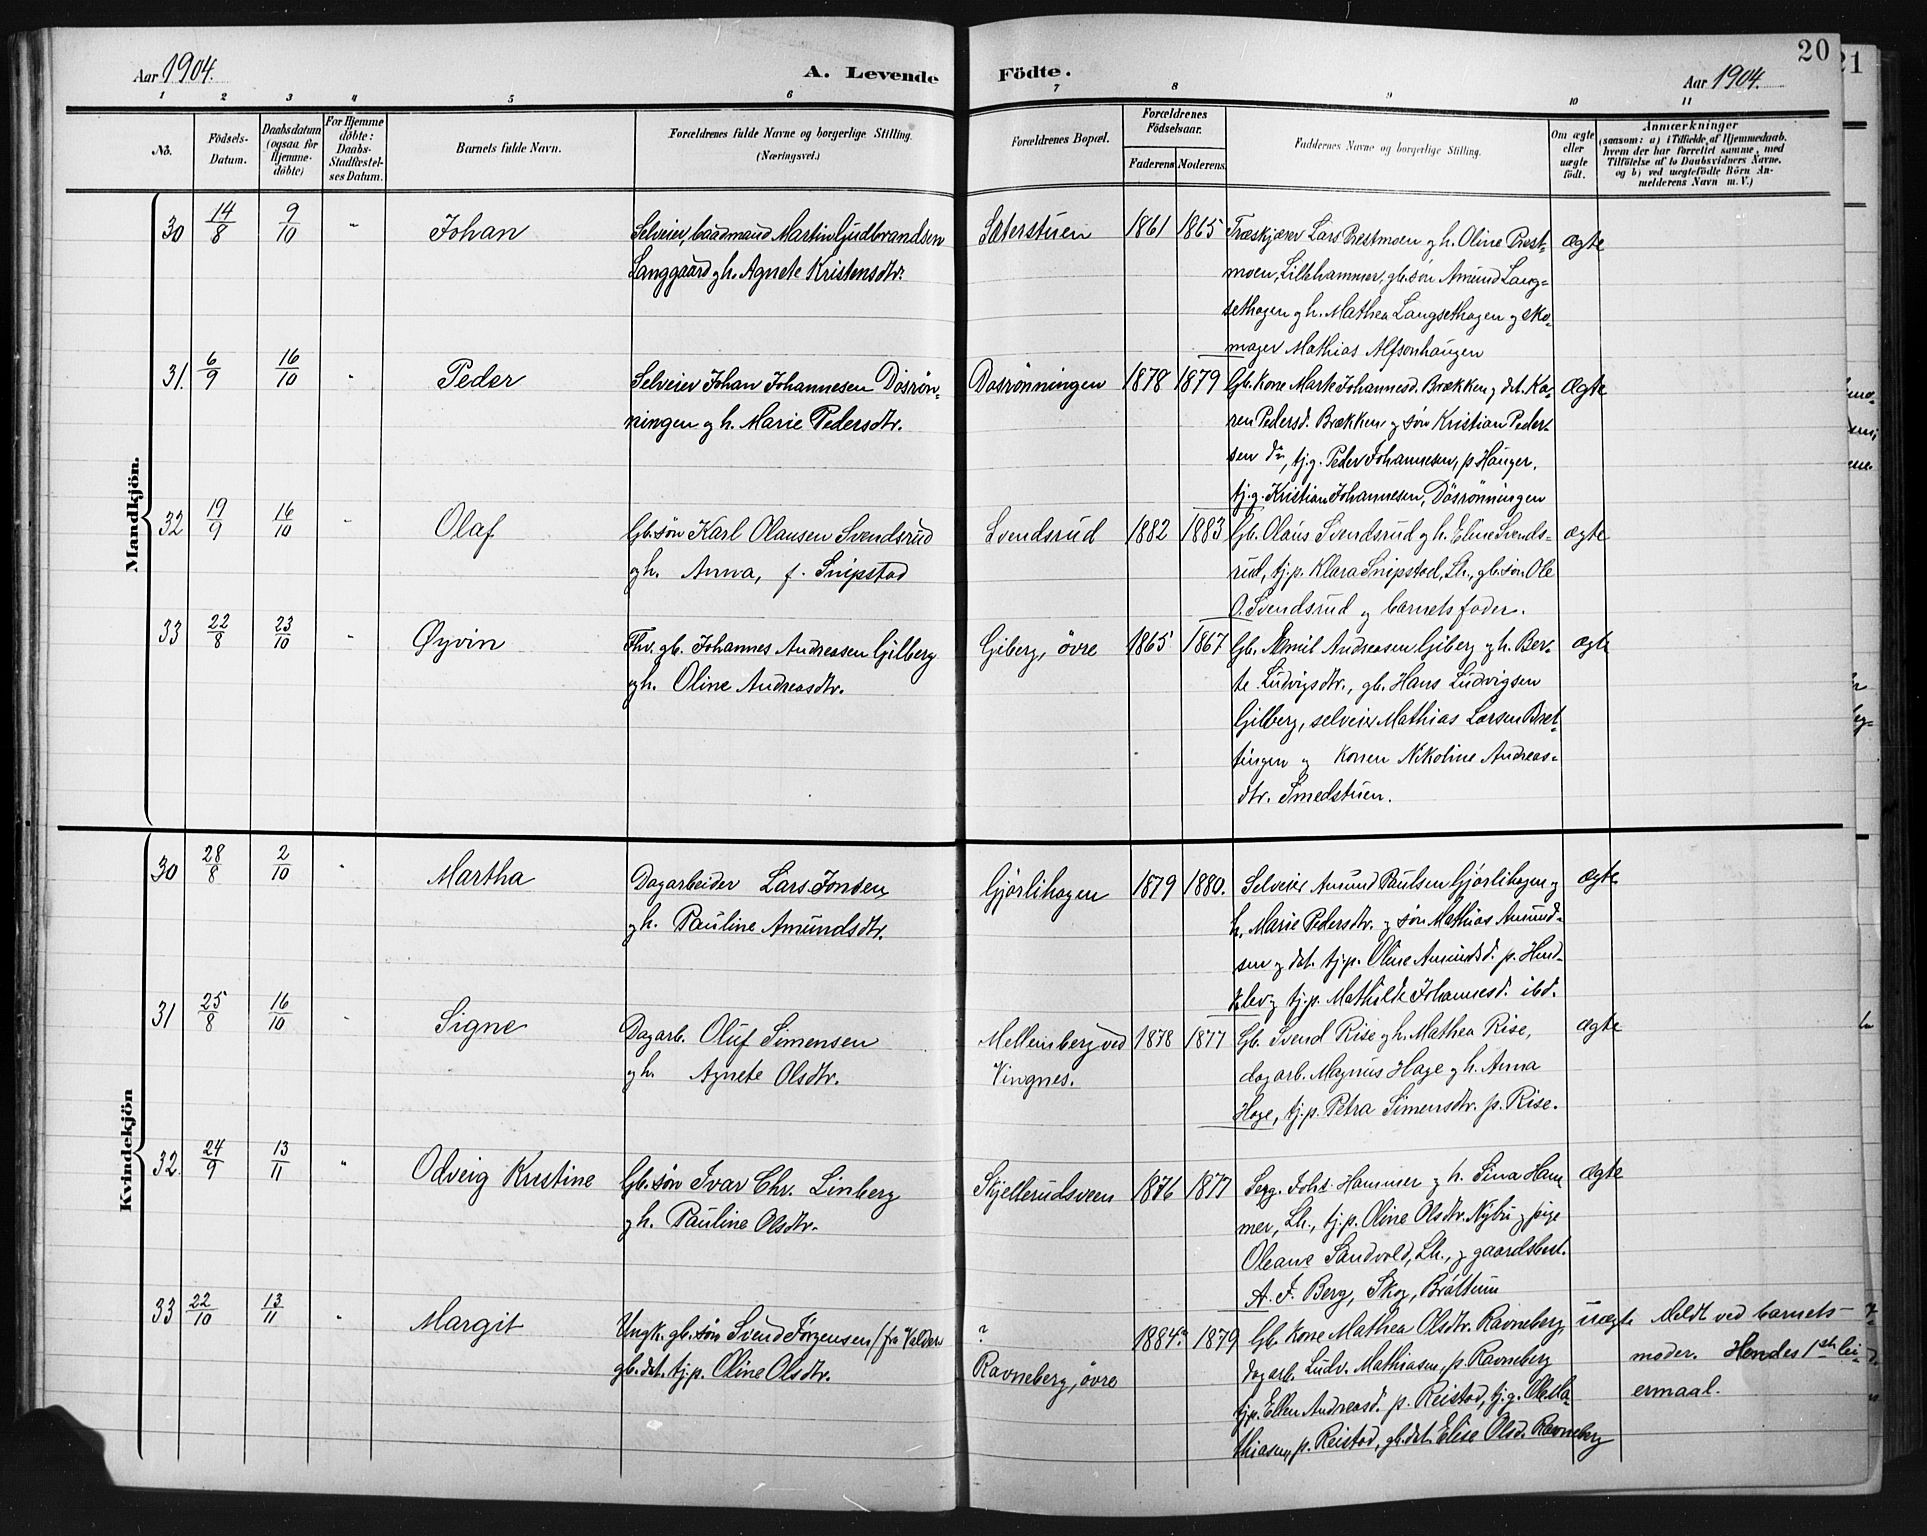 Aar 1904.
A. Levende Födte.
Aar 1904.
20
21
1 2 3 4 5 6 7 8 9 10 11
No.
Födsels-
Datum.
Daabsdatum
(ogsaa for
Hjemme-
döbte)
For Hjemme
döbte:
Daabs-
Stadfæstel-
ses Datum.
Barnets fulde Navn.
Forældrenes fulde Navne og borgerlige Stilling.
(Næringsvei.)
Forældrenes Bopæl.
Forældrenes
Födselsaar.
Faderens Moderens.
Faddernes Navne og borgerlige Stilling.
Om ægte
eller
uægte
födt.
Anmærkninger
(saasom: a) i Tilfælde af Hjemmedaab,
hvem der har forrettet samme, med
Tilföielse af to Daabsvidners Navne.
og b) ved uægtefödte Börn An-
melderens Navn m. V.)
Mandkjön.
30 14/8 9/10 " Johan
Selveier, baadmand Martin Gudbrandsen
Langgaard gh. Agnete Kristensdtr.
Sæterstuen 1861 1865
Træskjærer Lars Prestmoen gh. Oline Prest-
moen, Lillehammer, gb. søn Amund Lang-
sethagen gh. Mathea Langsethagen og sko-
mager Mathias Alfsonhaugen
ægte
31. 6/9 16/10 " Peder
Selveier Johan Johannesen Dösrön-
ningen gh. Marie Pedersdtr.
Dosrønningen 1878 1879
Gb. Kone Marte Johannesd. Brækken og dat. Ka-
ren Pedersd. Brækken og søn Kristian Peder-
sen do, tj.g. Peder Johannesen, p. Hauger,
tj.g. Kristian Johannesen, Dösrönningen
Ægte
32 19/9 16/10 " Olaf
Gb. søn Karl Olausen Svendsrud
gh. Anna, f. Snipstad
Svendsrud 1882 1883
Gb. Olaus Svendsrud gh. Eline Svends-
rud, tj.p. Klara Snipstad, Lh., gb. søn Ole
O. Svendsrud og barnets fader.
ægte
33 22/8 23/10 " Øyvin
Fhv. gb. Johannes Andreasen Gilberg
gh. Oline Andreasdtr.
Giberg, övre 1865 1867
Gb. Emil Andreasen Giberg gh. Ber-
te Ludvigsdtr., gb. Hans Ludvigsen
Gilberg, selveier Mathias Larsen Bret-
tingen og konen Nikoline Andreas-
dtr. Smedstuen.
ægte
Kvindekjön
30 28/8 2/10 " Martha
Dagarbeider Lars Jonsen,
gh. Pauline Amundsdtr.
Gjörlihagen 1879 1880.
Selveier Amund Paulsen Gjörlihagen og
h. Marie Pedersdtr. og søn Mathias Amund-
sen og dat. tj.p. Oline Amundsd. p. Hund-
klev og tj.p. Mathilde Johannesd. ibd.
ægte
31 25/8 16/10 " Signe
Dagarb. Oluf Simensen
gh. Agnete Olsdtr.
Mellemberg ved
Vingnes.
1878 1877
Gb. Svend Rise gh. Mathea Rise,
dagarb. Magnus Hage gh. Anna
Hage, tj.p. Petra Simensdtr. p. Rise.
ægte
32. 24/9 13/11 " Odveig Kristine
Gb. søn Ivar Chr. Linberg
gh. Pauline Olsdtr.
Skjellerudsveen 1876 1877
Serg. Johs. Hammer og h. Sina Ham-
mer, Lh., tj.p. Oline Olsdtr. Nybu og pige
Oleane Sandvold, Lh., og gaardsbest.
A. F. Berg, Skog, Bröttum
ægte
33 22/10 13/11 " Margit
Ungk. gb. søn Svend Jörgensen (fra Valders
gb. dat. tj.p. Oline Olsdtr.
?
Ravneberg, övre
1884? 1879
Gb. Kone Mathea Olsdtr. Ravneberg,
dagarb. Ludv. Mathiasen, p. Ravneberg
tj.p. Ellen Andreasd. p. Reistad, tj.g. Ole Ma-
thiasen, p. Reistad, gb. dat. Elise Olsd. Ravneberg
uægte
Meldt ved barnets
moder. Hendes 1ste lei-
ermaal.